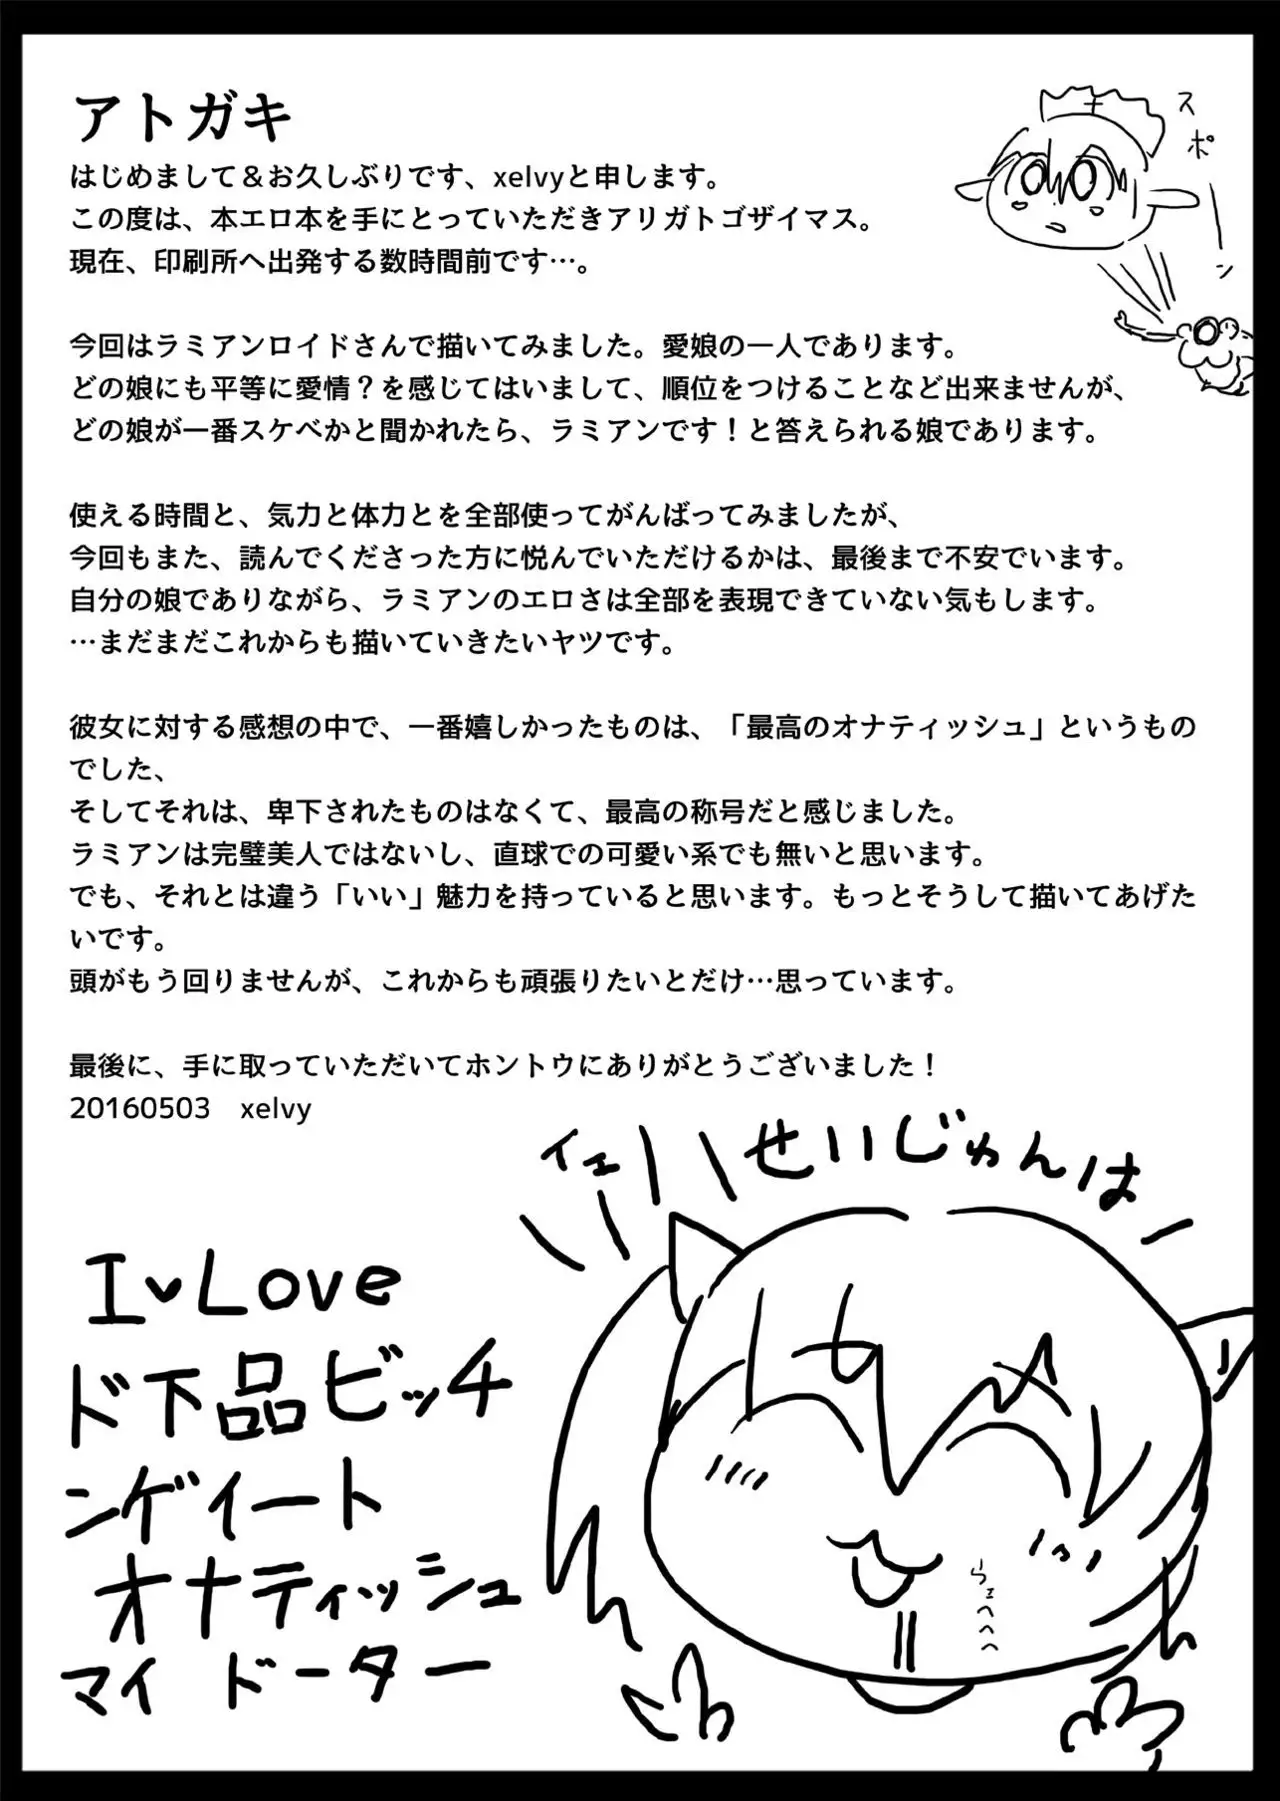 アトガキ
はじめまして＆お久しぶりです、xelvyと申します。
この度は、本エロ本を手にとっていただきアリガトゴザイマス。
現在、印刷所へ出発する数時間前です…。
今回はラミアンロイドさんで描いてみました。愛娘の一人であります。
どの娘にも平等に愛情？を感じてはいまして、順位をつけることなど出来ませんが、
どの娘が一番スケベかと聞かれたら、ラミアンです！と答えられる娘であります。
使える時間と、気力と体力とを全部使ってがんばってみましたが、
今回もまた、読んでくださった方に悦んでいただけるかは、最後まで不安でいます。
自分の娘でありながら、ラミアンのエロさは全部を表現できていない気もします。
…まだまだこれからも描いていきたいヤツです。
彼女に対する感想の中で、一番嬉しかったものは、「最高のオナティッシュ」というもの
でした、
そしてそれは、卑下されたものはなくて、最高の称号だと感じました。
ラミアンは完璧美人ではないし、直球での可愛い系でも無いと思います。
でも、それとは違う「いい」魅力を持っていると思います。もっとそうして描いてあげた
いです。
頭がもう回りませんが、これからも頑張りたいとだけ…思っています。
最後に、手に取っていただいてホントウにありがとうございました！
20160503　xelvy
スポーン
イエ
せいじゅんは
I♥Love
ド下品ビッチ
ンゲイート
オナティッシュ
マイ ドーター
へへへ